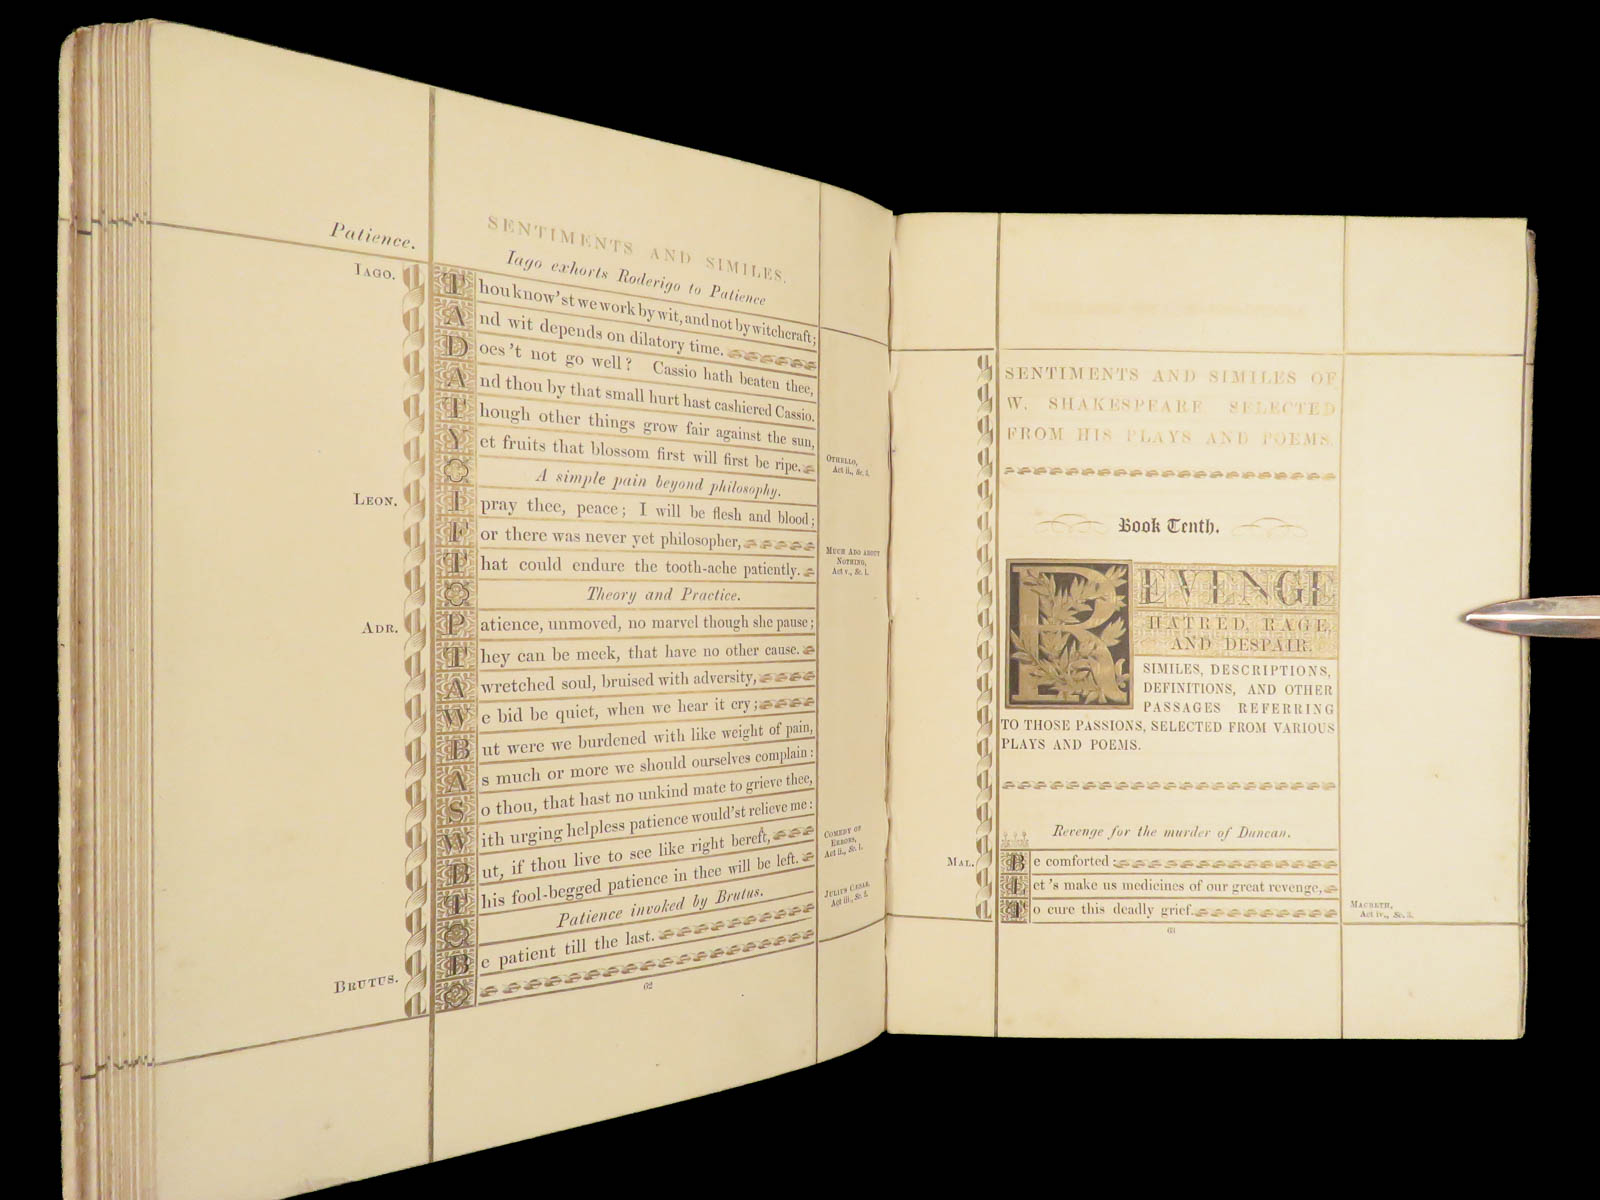 Patience.
SENTIMENTS AND SIMILES.
Iago exhorts Roderigo to Patience
IAGO.
Thou know'st we work by wit, and not by witchcraft;
And wit depends on dilatory time.
Does 't not go well? Cassio hath beaten thee,
And thou by that small hurt hast cashiered Cassio.
Though other things grow fair against the sun,
Yet fruits that blossom first will first be ripe.
OTHELLO,
Act ii., Sc. 3.
A simple pain beyond philosophy.
LEON.
I pray thee, peace; I will be flesh and blood;
For there was never yet philosopher,
That could endure the tooth-ache patiently.
MUCH ADO ABOUT
NOTHING,
Act v., Sc. 1.
Theory and Practice.
ADR.
Patience, unmoved, no marvel though she pause;
They can be meek, that have no other cause.
A wretched soul, bruised with adversity,
We bid be quiet, when we hear it cry;
But were we burdened with like weight of pain,
As much or more we should ourselves complain:
So thou, that hast no unkind mate to grieve thee,
With urging helpless patience would'st relieve me:
But, if thou live to see like right bereft,
This fool-begged patience in thee will be left.
COMEDY OF
ERRORS,
Act ii., Sc. 1.
Patience invoked by Brutus.
BRUTUS.
Be patient till the last.
JULIUS CÆSAR,
Act iii., Sc. 2.
62
SENTIMENTS AND SIMILES OF
W. SHAKESPEARE SELECTED
FROM HIS PLAYS AND POEMS.
Book Tenth.
REVENGE
HATRED, RAGE,
AND DESPAIR.
SIMILES, DESCRIPTIONS,
DEFINITIONS, AND OTHER
PASSAGES REFERRING
TO THOSE PASSIONS, SELECTED FROM VARIOUS
PLAYS AND POEMS.
Revenge for the murder of Duncan.
MAL.
Be comforted:
Let 's make us medicines of our great revenge,
To cure this deadly grief.
MACBETH,
Act iv., Sc. 3.
63